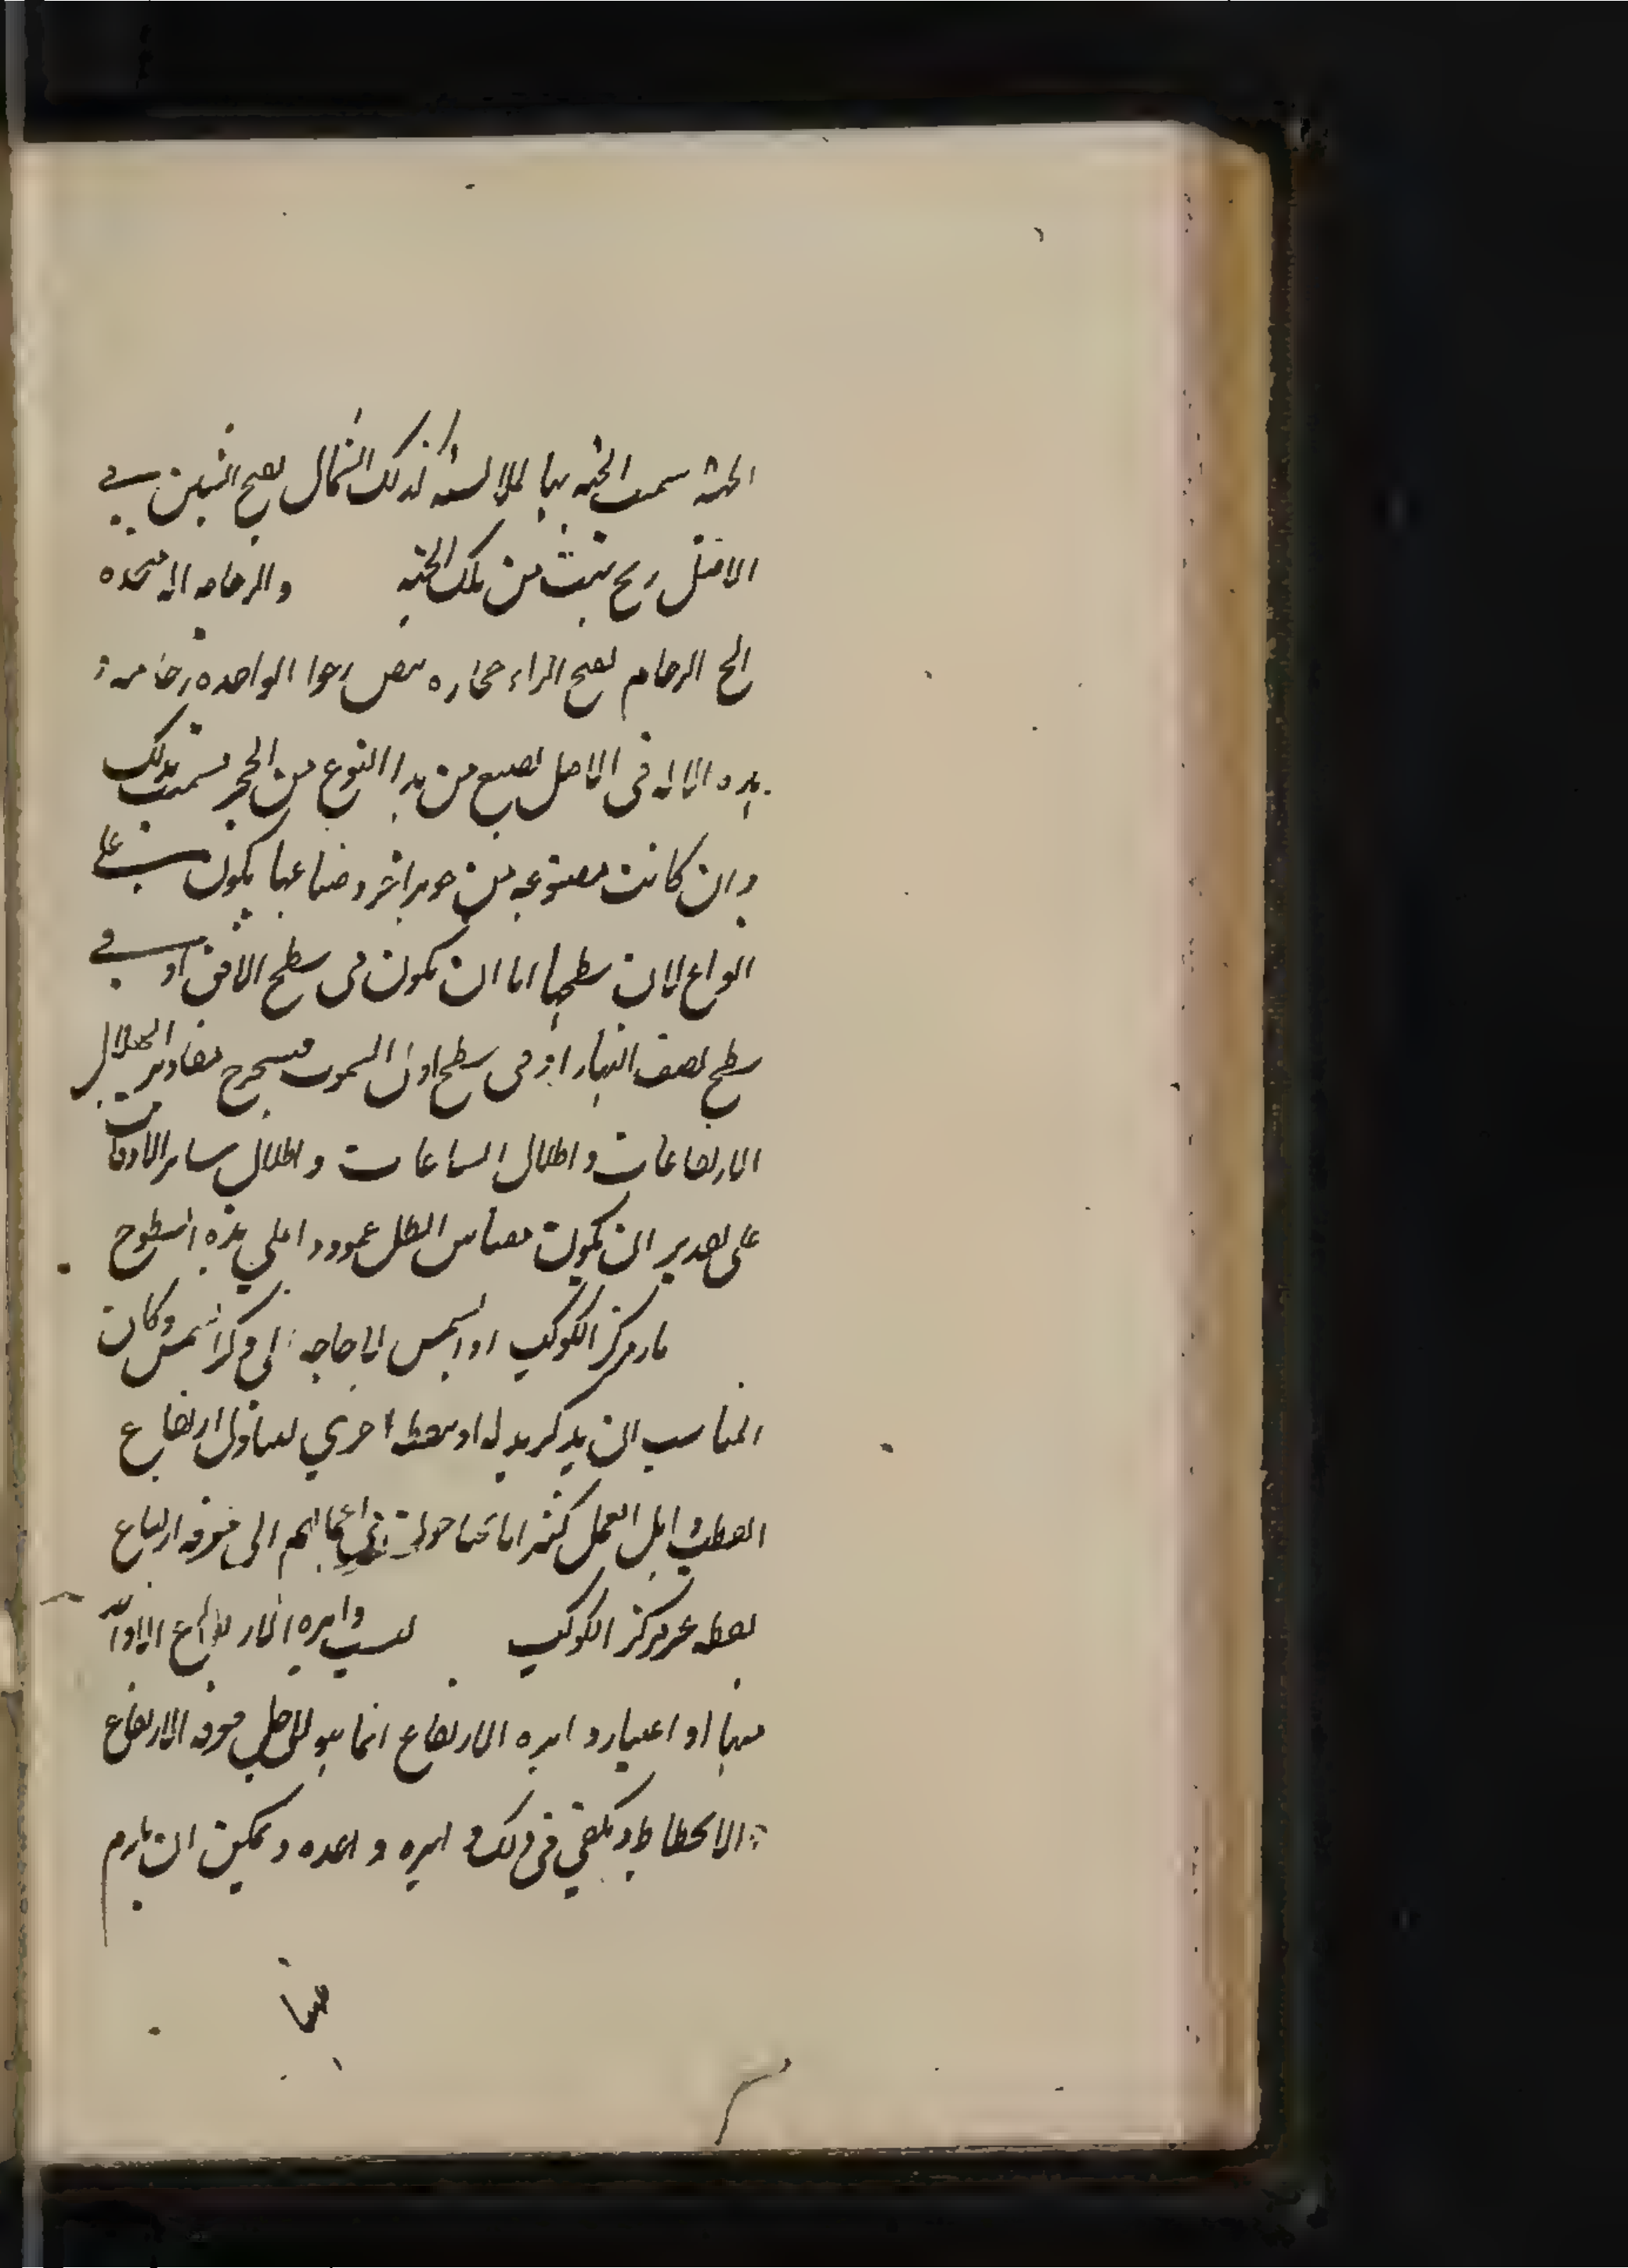 الجهة سميت الجهة بها للملابسة كذلك الشمال بفتح الشين في
الاصل ريح تهب من تلك الجهة والرخامه اله متخذه
الخ الرخام بفتح الراء حجاره بيض رخوا الواحده رخامه
هذه الاله في الاصل تصنع من هذا النوع من الحجر فسميت بذلك
وان كانت مصنوعه من جوهر اخر وصناعها يكون على
انواع لان سطحها اما ان يكون في سطح الافق او في
سطح نصف النهار او في سطح اول السموت فيستخرج مقادير اظلال
الارتفاعات و اظلال الساعات و اظلال ساير الاوقات
على تقدير ان يكون مقياس الظل عمودا على هذه السطوح
مار بمركز الكوكب او الشمس لا حاجه الى ذكر الشمس وكان
المناسب ان يذكر بدله او نقطه اخري ليتناول ارتفاع
القطب و اهل العمل كثيرا ما يحتاجون في اعمالهم الى معرفه ارتفاع
نقطه غير مركز الكوكب ليست دايره الارتفاع الا اذا
منها او اعتبار دايره الارتفاع انما هو لاجل معرفه الارتفاع
و الانحطاط و يكفي في ذلك دايره واحده و يمكن ان يلزم